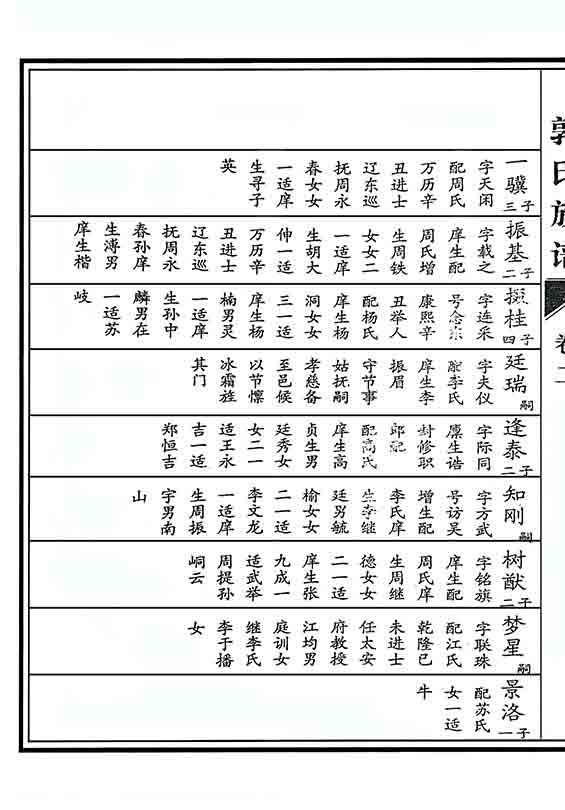 郭氏族谱
卷二
一骥
三子
字天闲
配周氏
万历辛
丑进士
辽东巡
抚周永
春女女
一适庠
生寻子
英
振基
二子
字载之
庠生配
周氏增
生周铁
女女二
一适庠
生胡大
仲一适
万历辛
丑进士
辽东巡
抚周永
春孙庠
生溥男
庠生楷
桂
四子
字连采
号念
康熙辛
丑举人
配杨氏
庠生杨
洞女女
三一适
庠生杨
楠男灵
一适庠
生孙中
麟男在
一适苏
岐
廷瑞
嗣
字夫仪
配李氏
庠生李
振眉
守节事
姑抚嗣
孝慈备
至邑候
以节懔
冰霜旌
其门
逢泰
二子
字际同
廪生诰
封修职
郎配
配高氏
庠生高
贞生男
廷秀女
女二一
适王永
吉一适
郑恒吉
知刚
嗣
字方武
号访吴
增生配
李氏庠
生李继
廷男毓
榆女女
二一适
李文龙
一适庠
生周振
宇男南
山
树猷
二子
字铭旗
庠生配
周氏庠
生周继
德女女
二一适
庠生张
九成一
适武举
周提孙
峒云
梦星
嗣
字联珠
配江氏
乾隆已
未进士
任太安
府教授
江均男
庭训女
继李氏
李于播
女
景洛
一子
配苏氏
女一适
牛